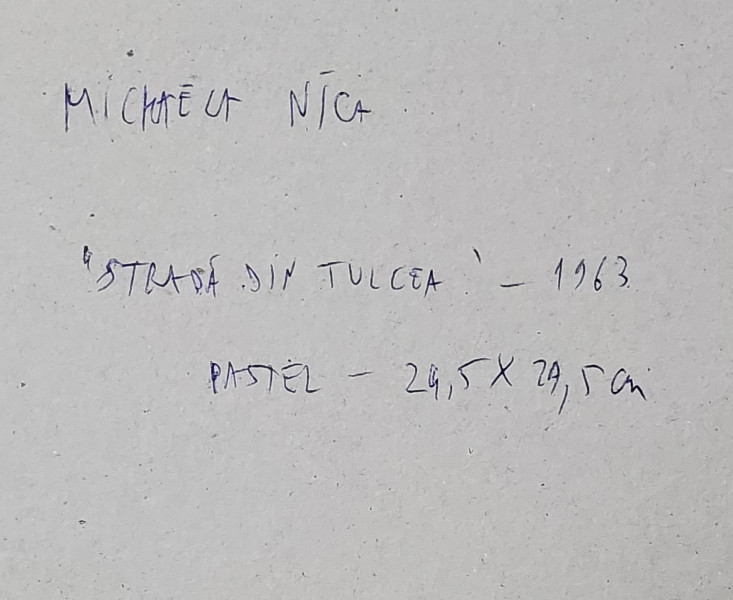 MICHAELA NICA
"STRADĂ DIN TULCEA" – 1963
PASTEL – 29,5 X 29,5 cm